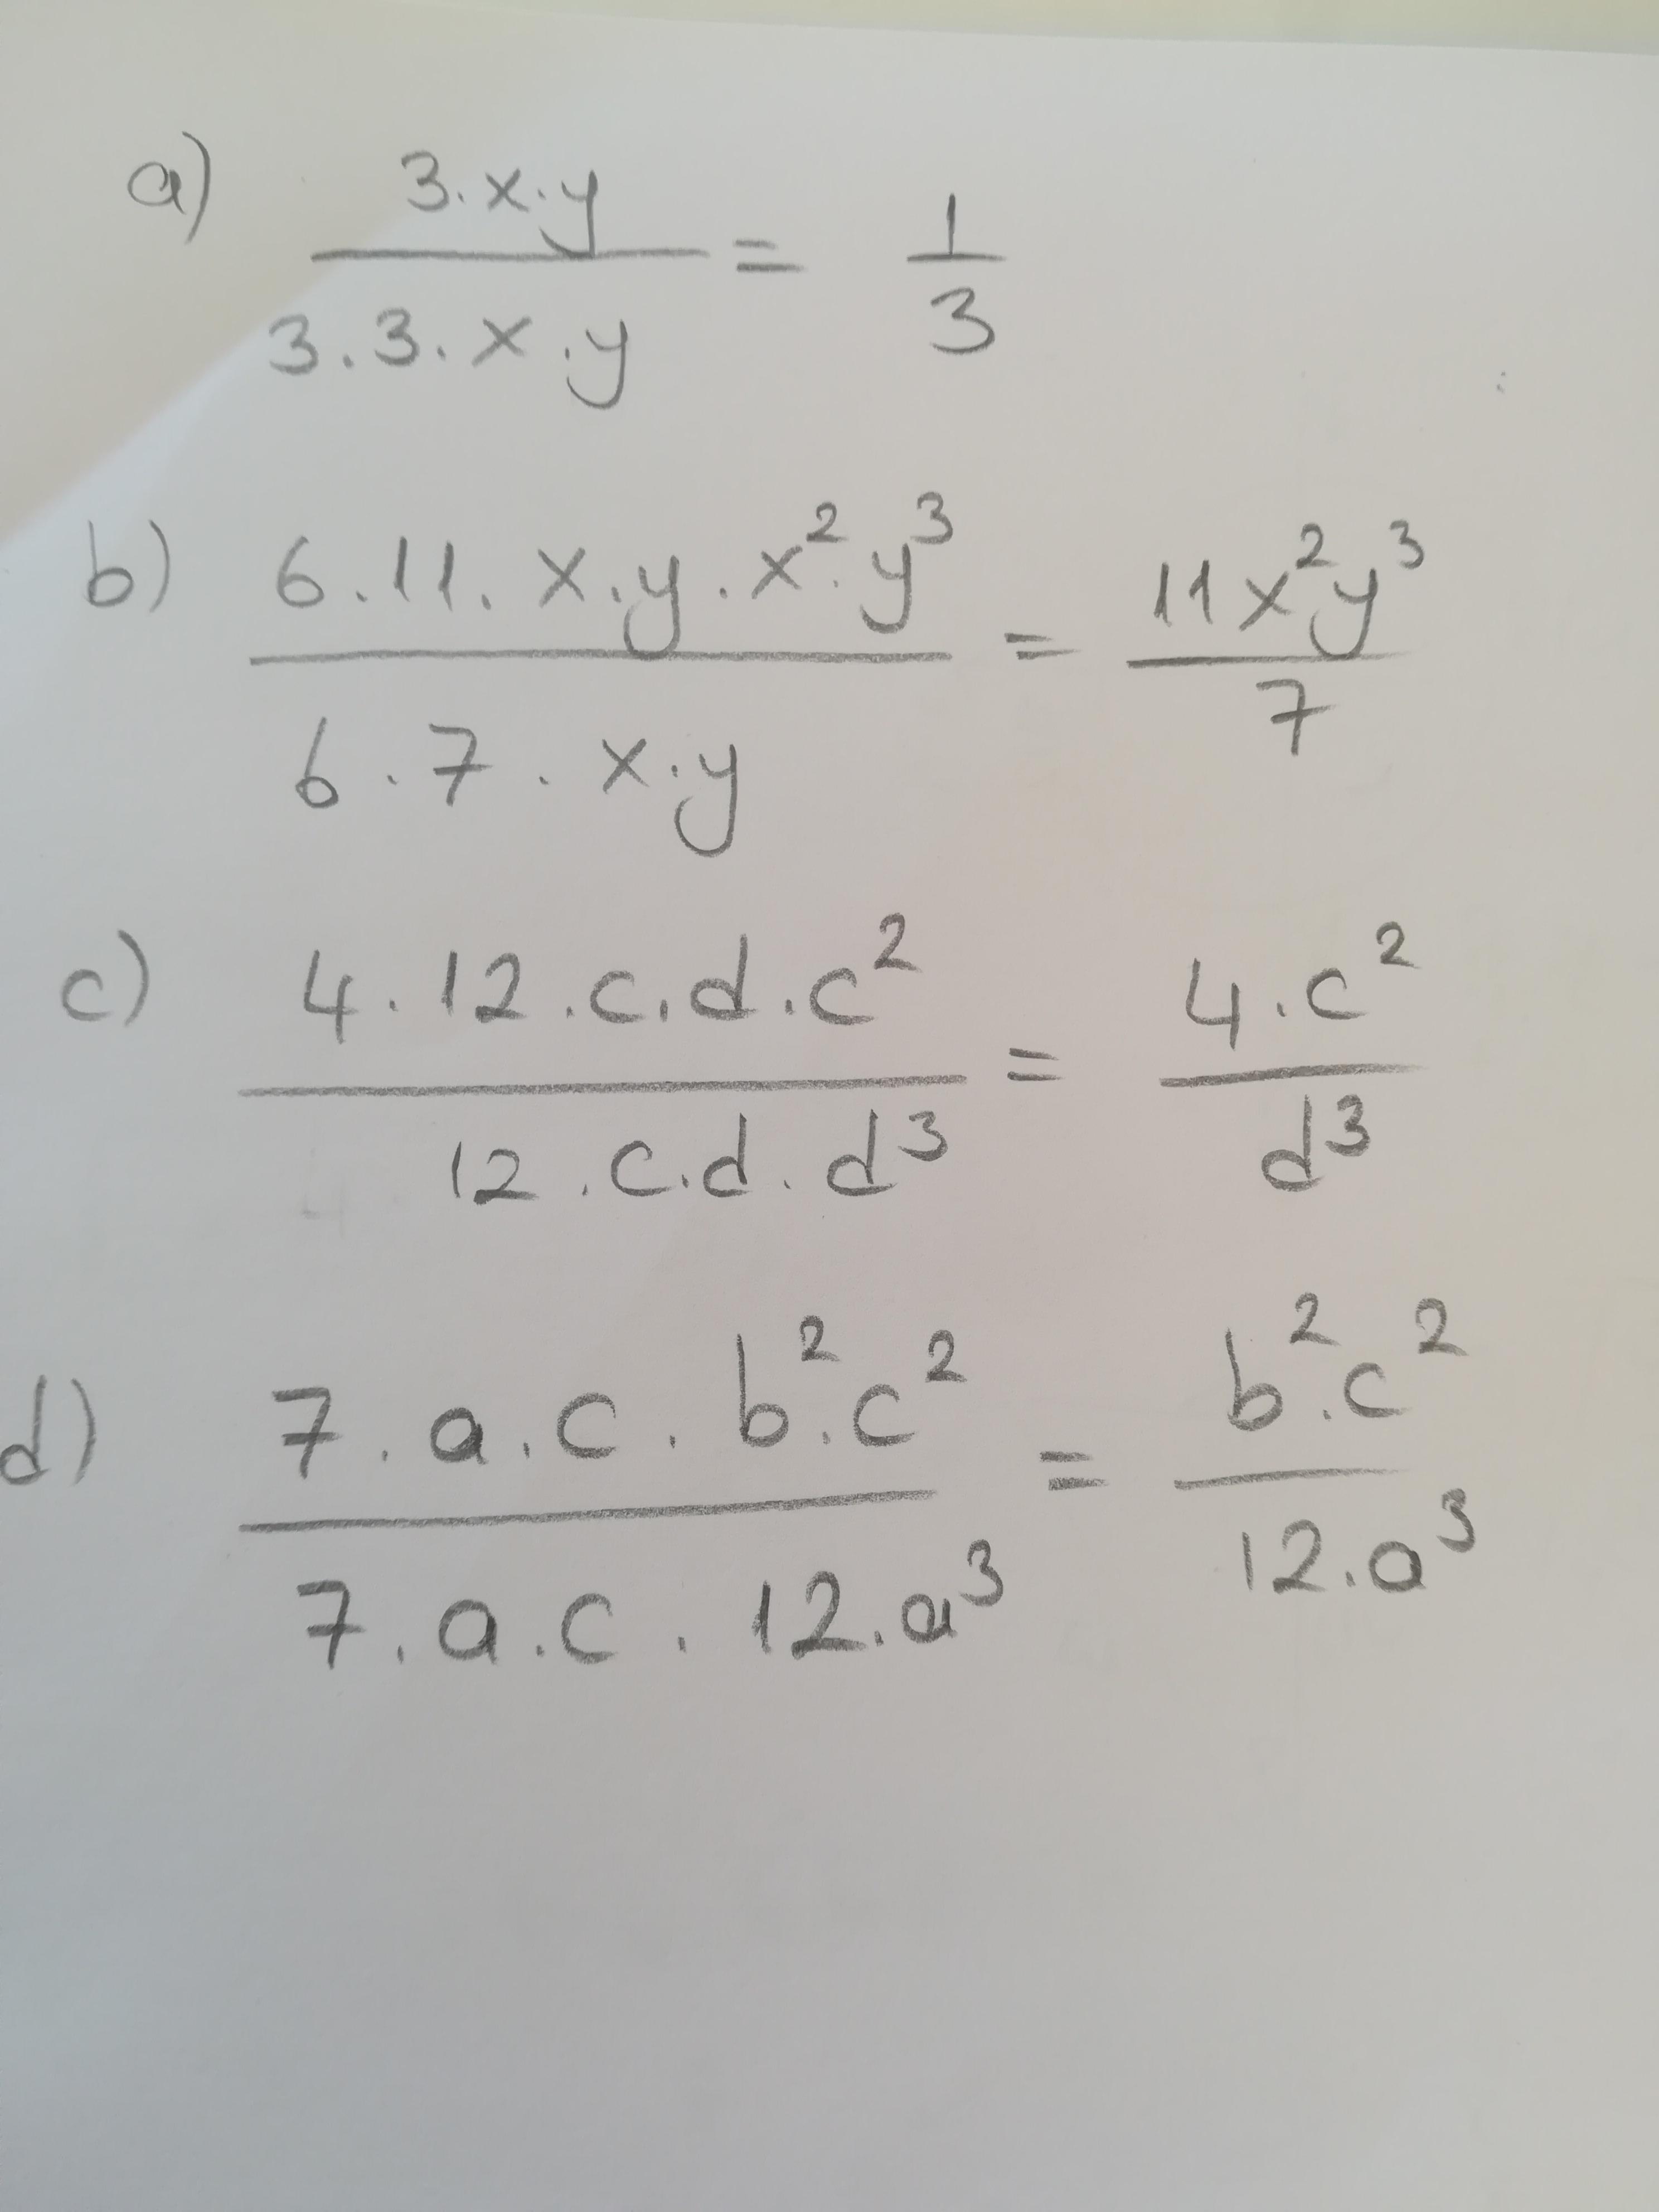 a) 3.x.y / 3.3.x.y = 1/3
b) 6.11.x.y.x².y³ / 6.7.x.y = 11x²y³ / 7
c) 4.12.c.d.c² / 12.c.d.d³ = 4.c² / d³
d) 7.a.c.b².c² / 7.a.c.12.a³ = b².c² / 12.a³